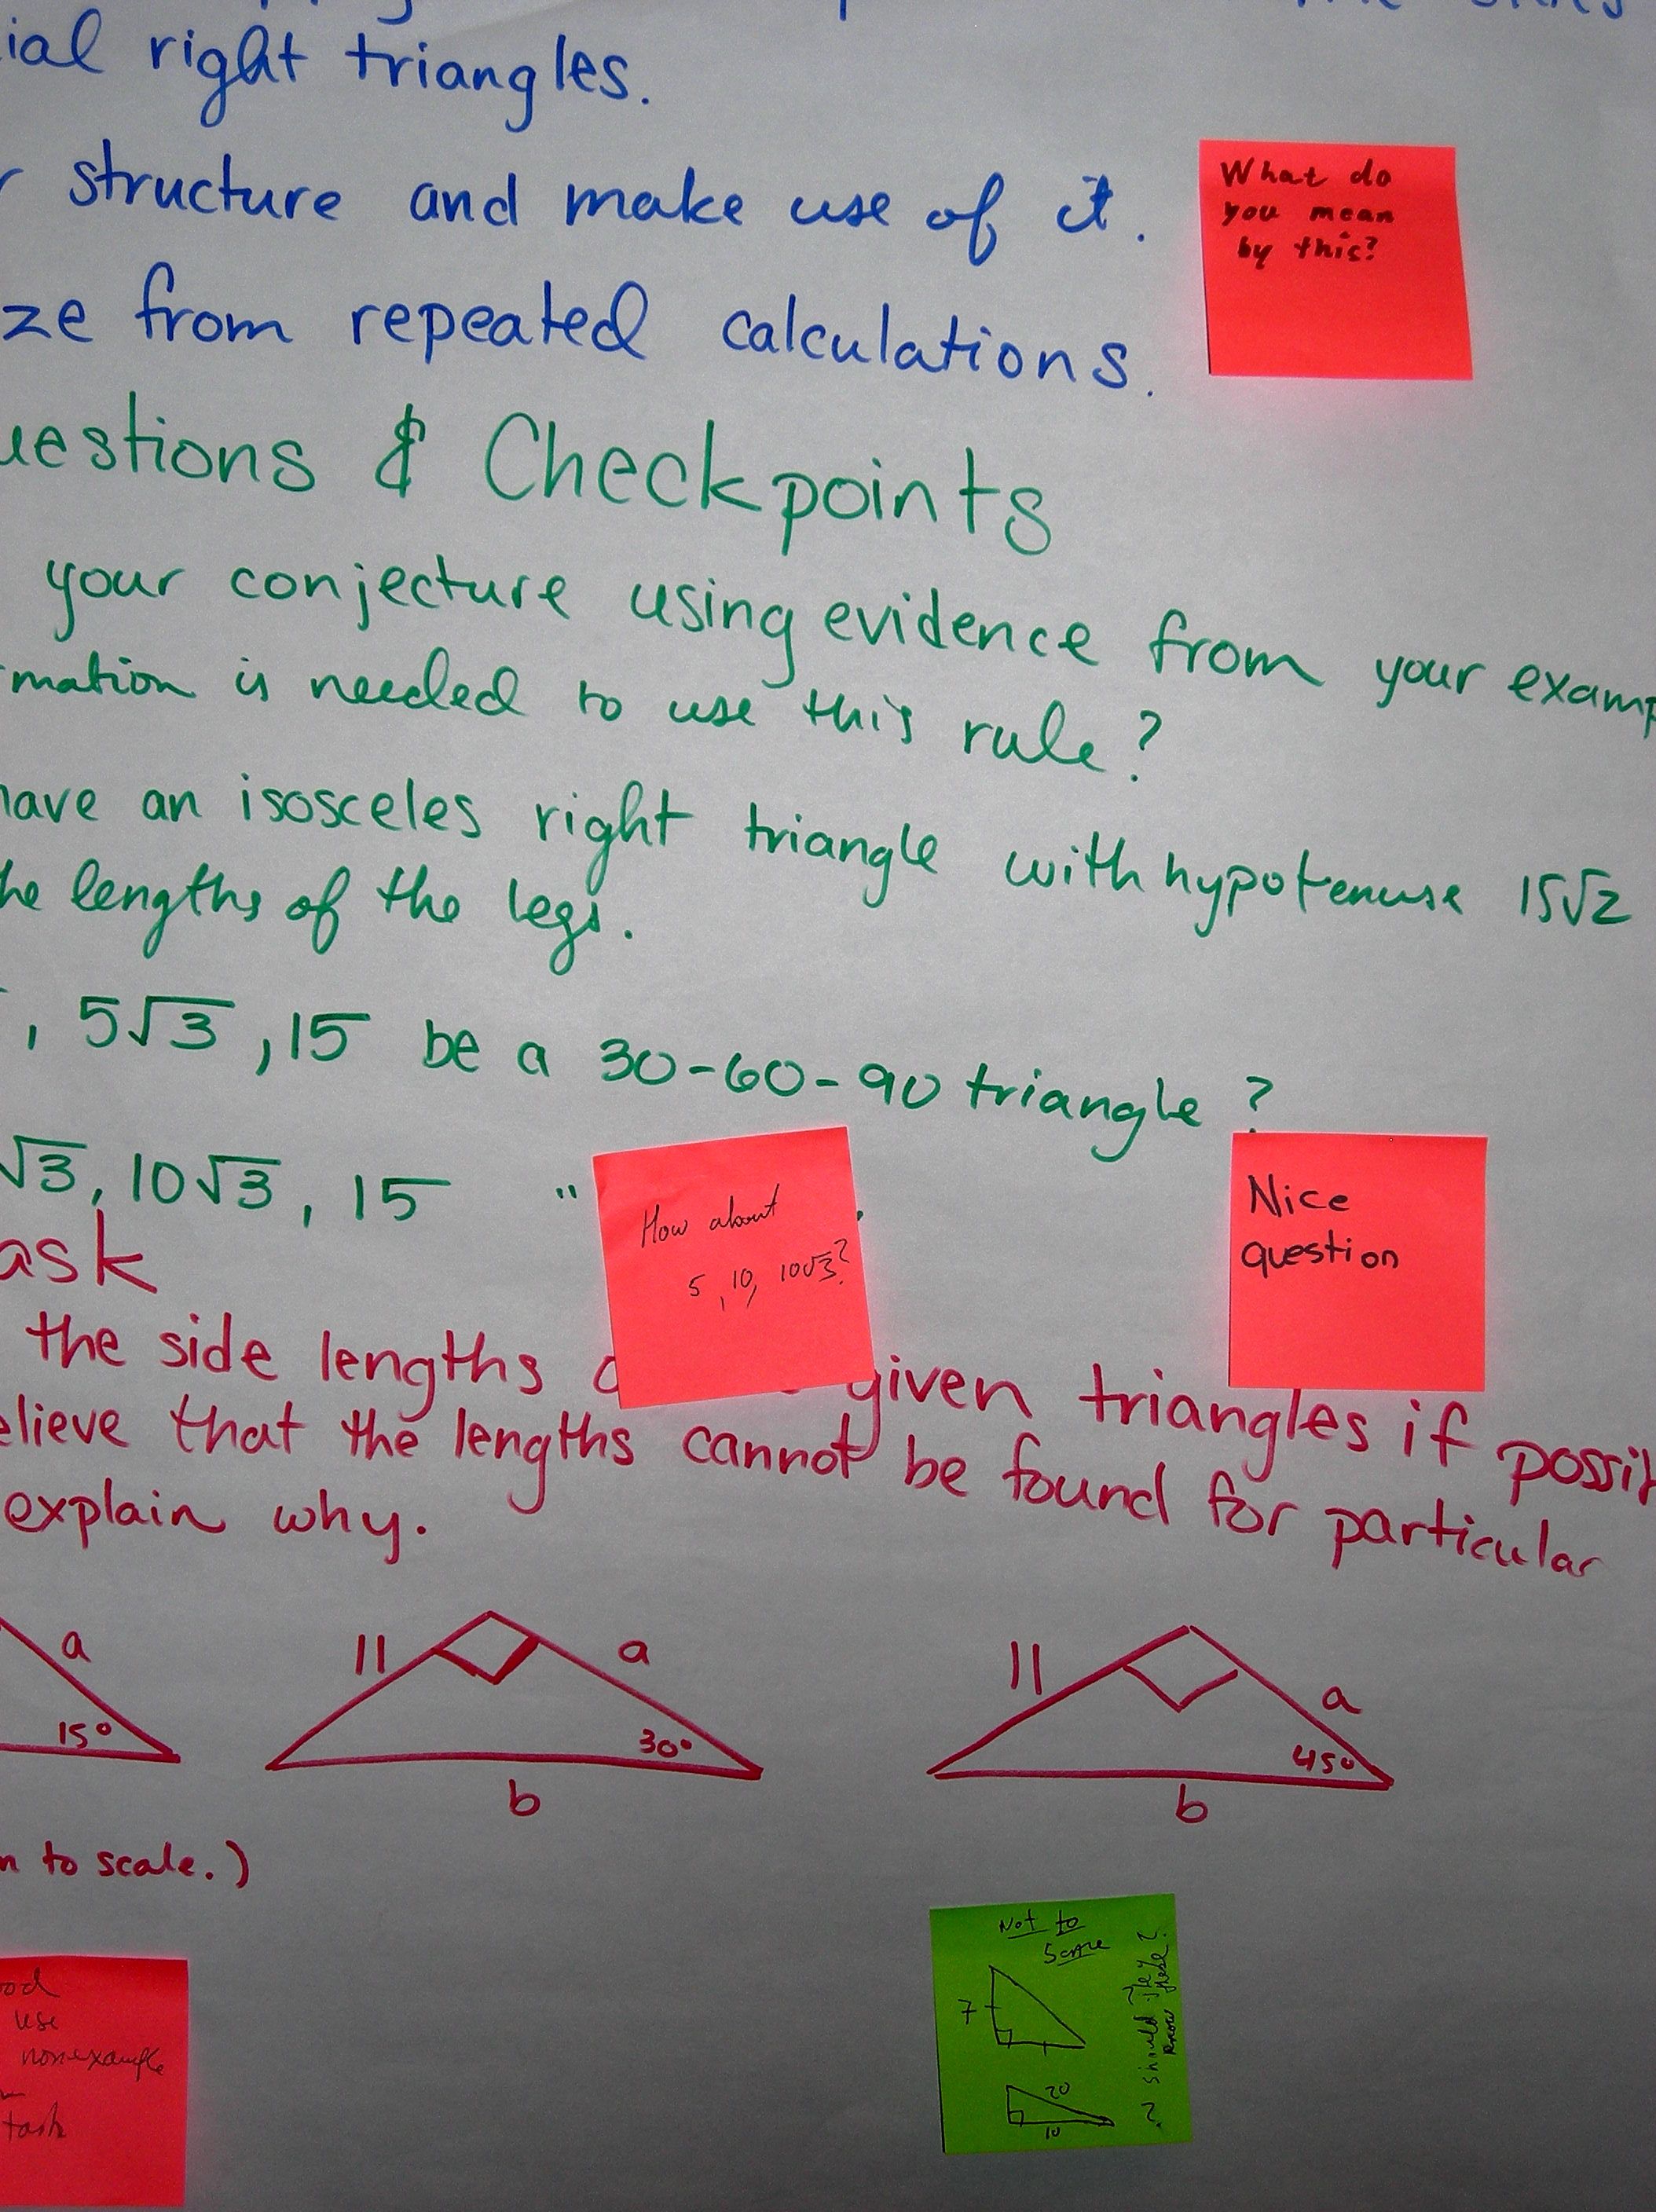 ial right triangles.
structure and make use of it.
ze from repeated calculations.
What do
you mean
by this?
uestions & Checkpoints
your conjecture using evidence from your examp
mation is needed to use this rule?
have an isosceles right triangle with hypotenuse 15√2
he lengths of the legs.
, 5√3, 15 be a 30-60-90 triangle?
√3, 10√3, 15 "
How about
5, 10, 10√3?
Nice
question
ask
the side lengths given triangles if possib
elieve that the lengths cannot be found for particular
explain why.
a
15°
11
a
30°
b
11
a
45°
b
n to scale.)
Not to
Scale
7
20
10
? should they
know these?
ood
use
nonexample
task